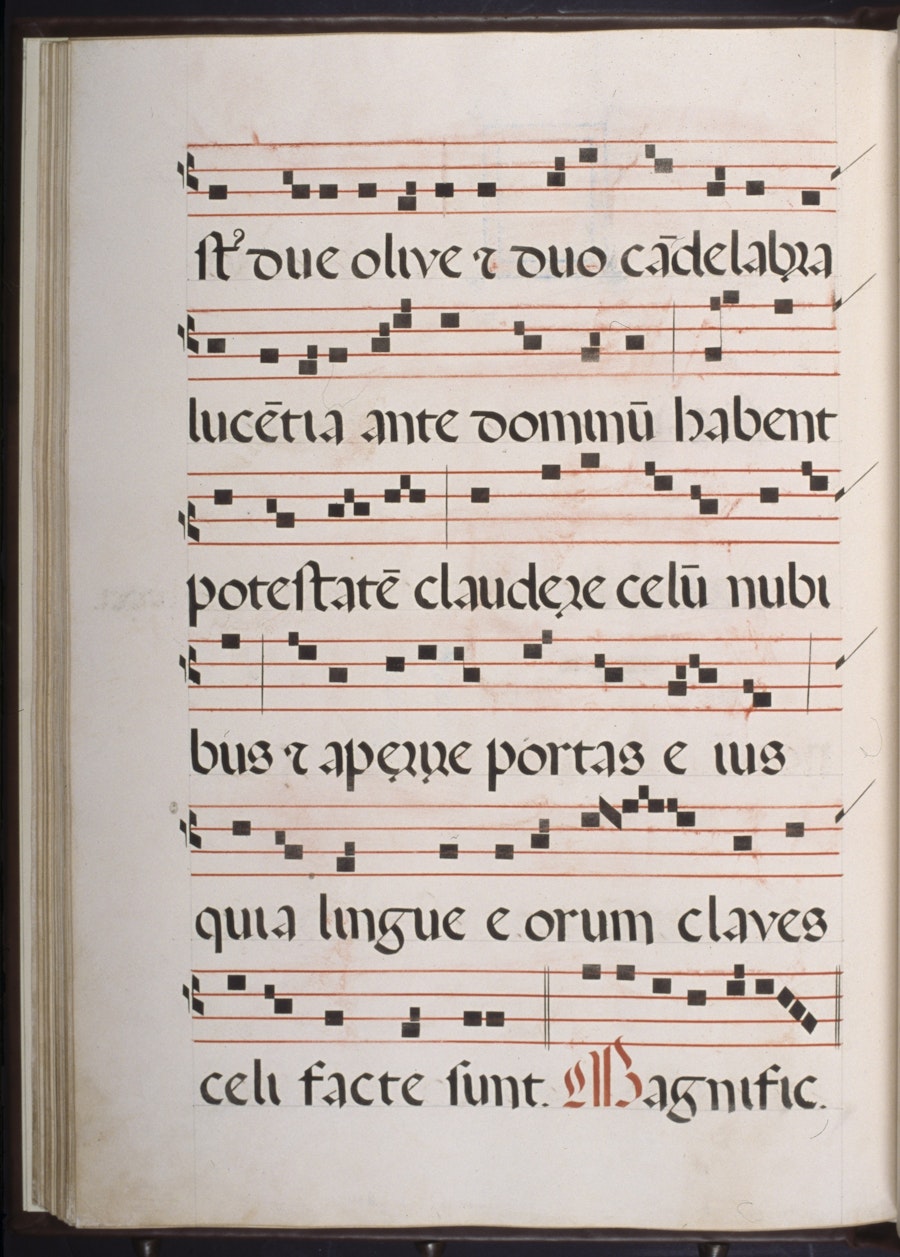 ſt᷑ due olive ⁊ duo cādelabꝛa
lucētia ante dominū habent
poteſtatē claudeꝛe celū nubi
bus ⁊ apeꝛꝛe portas e ius
quia lingue e orum claves
celi facte ſunt. Magnific.